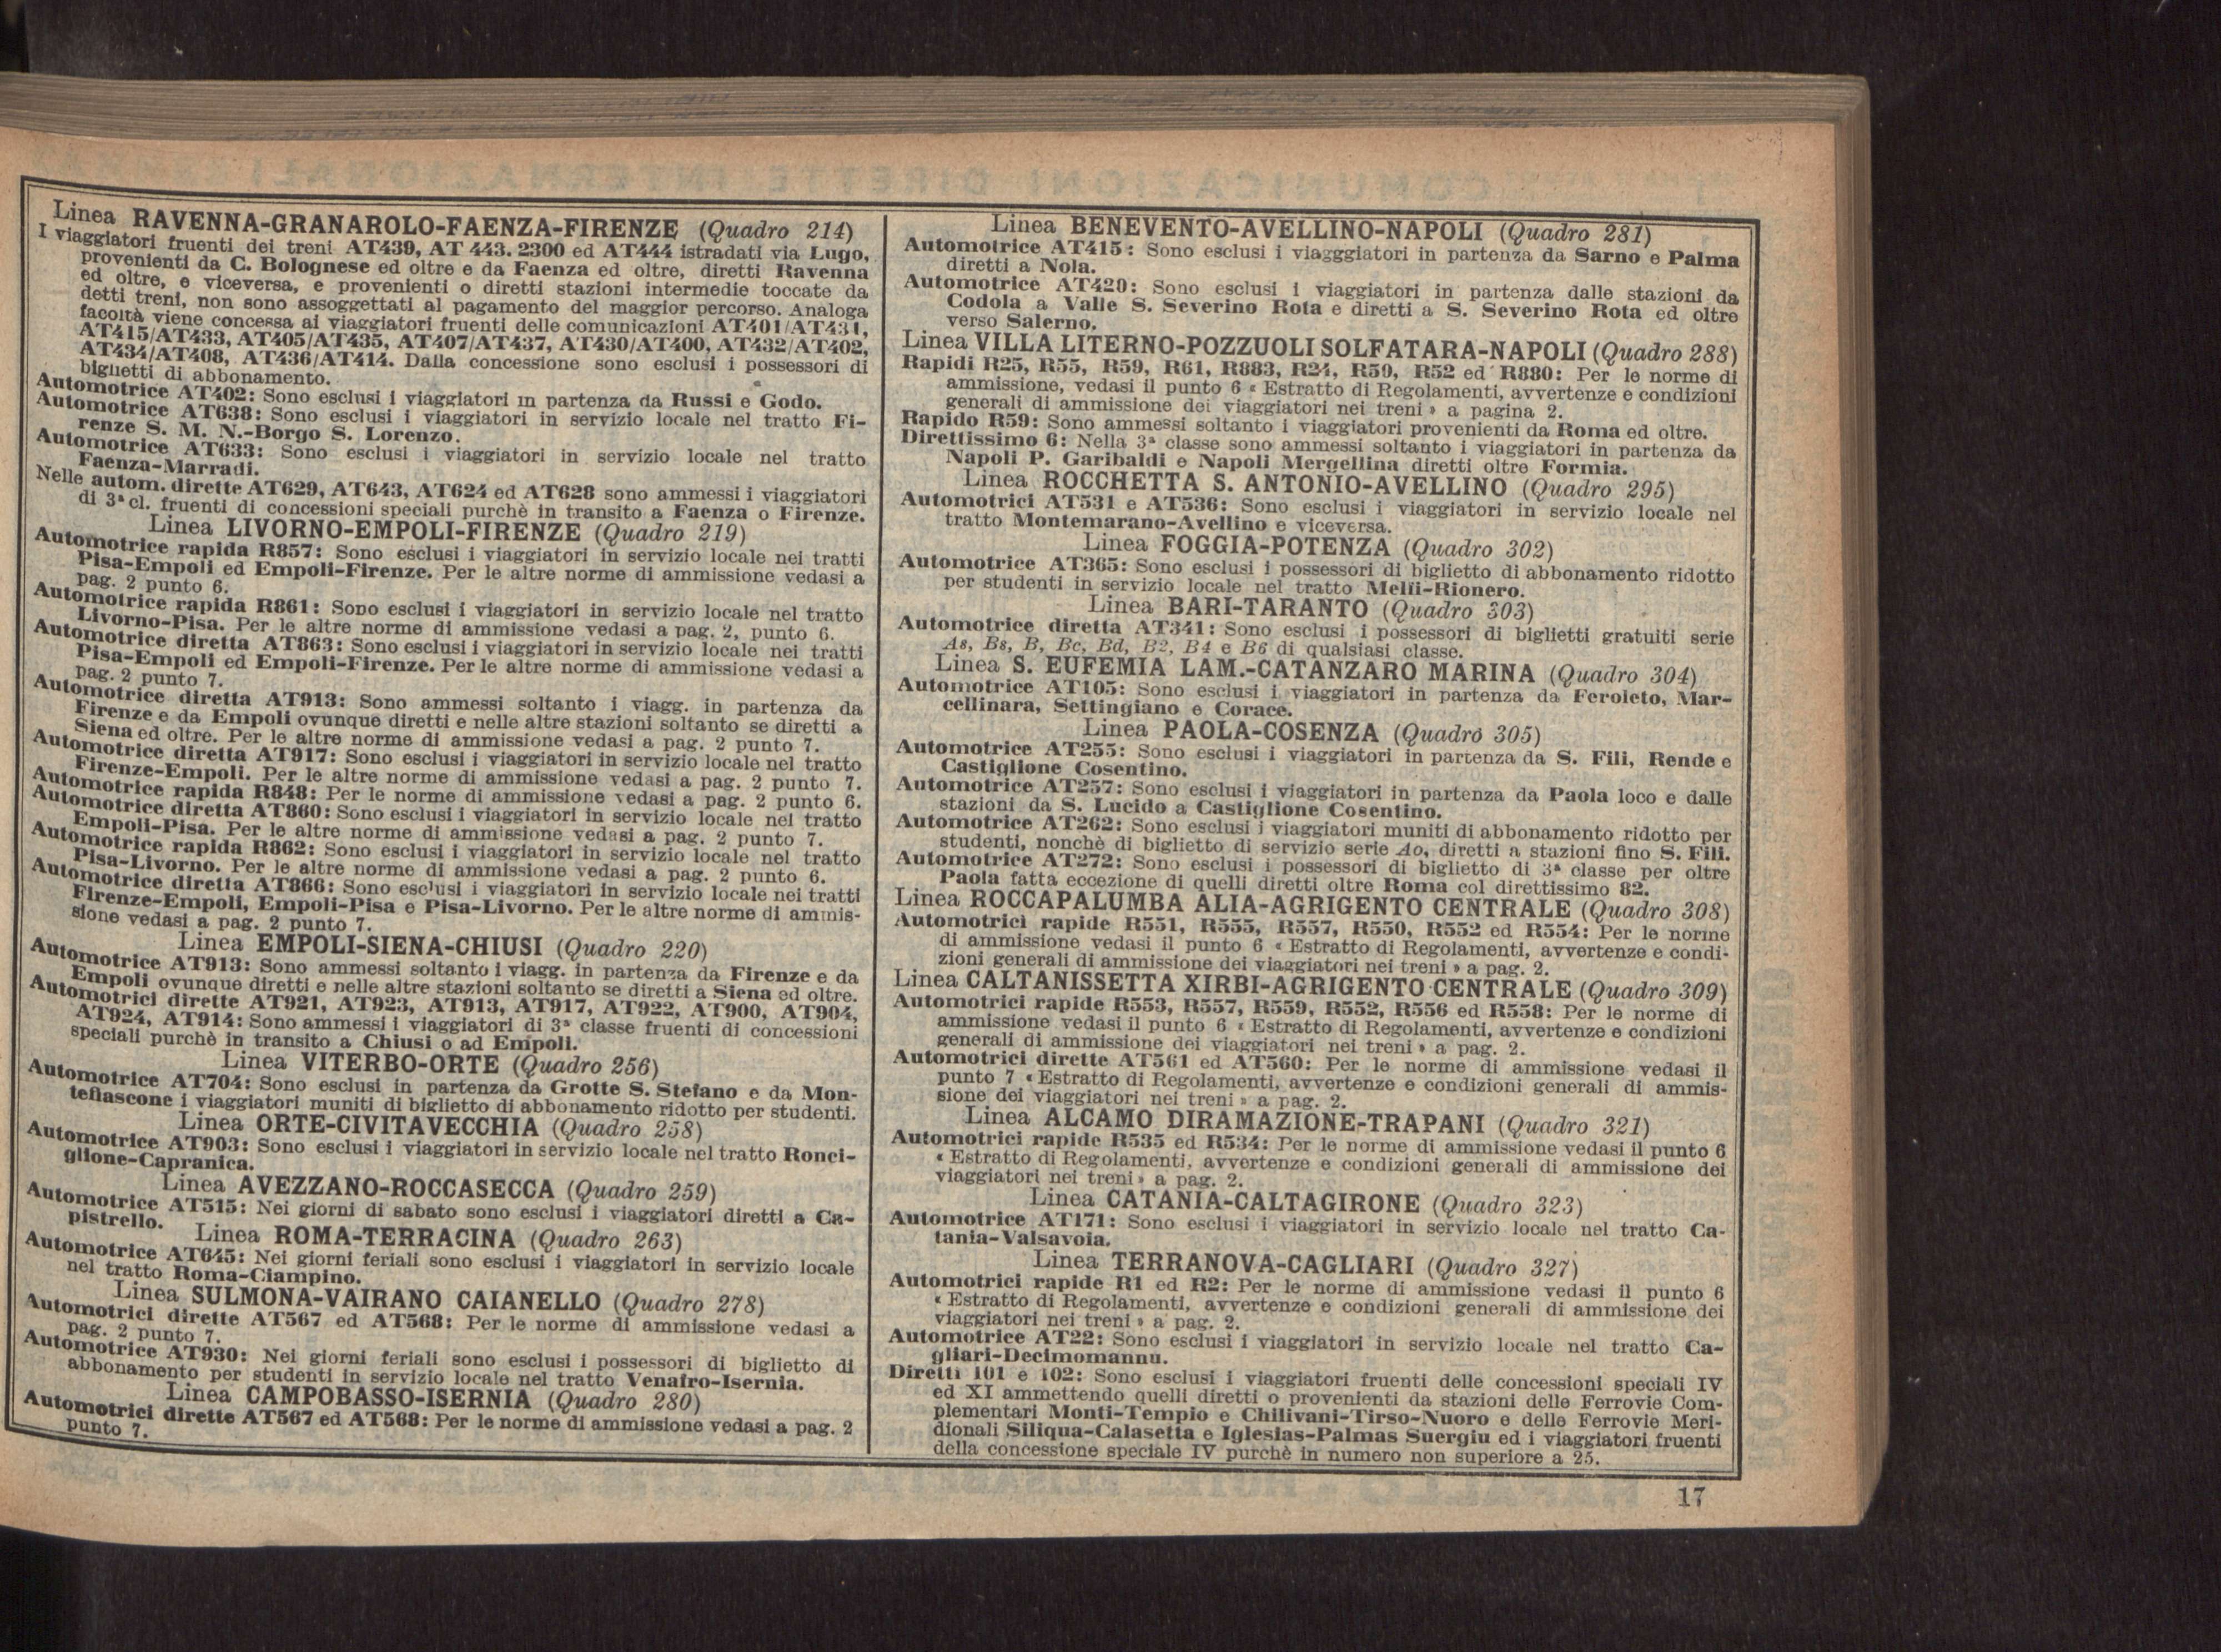 Linea RAVENNA-GRANAROLO-FAENZA-FIRENZE (Quadro 214)
I viaggiatori fruenti dei treni AT439, AT 443. 2300 ed AT444 istradati via Lugo,
provenienti da C. Bolognese ed oltre e da Faenza ed oltre, diretti Ravenna
ed oltre, e viceversa, e provenienti o diretti stazioni intermedie toccate da
detti treni, non sono assoggettati al pagamento del maggior percorso. Analoga
facoltà viene concessa ai viaggiatori fruenti delle comunicazioni AT401/AT431,
AT415/AT433, AT405/AT435, AT407/AT437, AT430/AT400, AT432/AT402,
AT434/AT408, AT436/AT414. Dalla concessione sono esclusi i possessori di
biglietti di abbonamento.
Automotrice AT402: Sono esclusi i viaggiatori in partenza da Russi e Godo.
Automotrice AT638: Sono esclusi i viaggiatori in servizio locale nel tratto Fi-
renze S. M. N.-Borgo S. Lorenzo.
Automotrice AT633: Sono esclusi i viaggiatori in servizio locale nel tratto
Faenza-Marradi.
Nelle autom. dirette AT629, AT643, AT624 ed AT628 sono ammessi i viaggiatori
di 3ª cl. fruenti di concessioni speciali purchè in transito a Faenza o Firenze.
Linea LIVORNO-EMPOLI-FIRENZE (Quadro 219)
Automotrice rapida R857: Sono esclusi i viaggiatori in servizio locale nei tratti
Pisa-Empoli ed Empoli-Firenze. Per le altre norme di ammissione vedasi a
pag. 2 punto 6.
Automotrice rapida R861: Sono esclusi i viaggiatori in servizio locale nel tratto
Livorno-Pisa. Per le altre norme di ammissione vedasi a pag. 2, punto 6.
Automotrice diretta AT863: Sono esclusi i viaggiatori in servizio locale nei tratti
Pisa-Empoli ed Empoli-Firenze. Per le altre norme di ammissione vedasi a
pag. 2 punto 7.
Automotrice diretta AT913: Sono ammessi soltanto i viagg. in partenza da
Firenze e da Empoli ovunque diretti e nelle altre stazioni soltanto se diretti a
Siena ed oltre. Per le altre norme di ammissione vedasi a pag. 2 punto 7.
Automotrice diretta AT917: Sono esclusi i viaggiatori in servizio locale nel tratto
Firenze-Empoli. Per le altre norme di ammissione vedasi a pag. 2 punto 7.
Automotrice rapida R848: Per le norme di ammissione vedasi a pag. 2 punto 6.
Automotrice diretta AT860: Sono esclusi i viaggiatori in servizio locale nel tratto
Empoli-Pisa. Per le altre norme di ammissione vedasi a pag. 2 punto 7.
Automotrice rapida R862: Sono esclusi i viaggiatori in servizio locale nel tratto
Pisa-Livorno. Per le altre norme di ammissione vedasi a pag. 2 punto 6.
Automotrice diretta AT866: Sono esclusi i viaggiatori in servizio locale nei tratti
Firenze-Empoli, Empoli-Pisa e Pisa-Livorno. Per le altre norme di ammis-
sione vedasi a pag. 2 punto 7.
Linea EMPOLI-SIENA-CHIUSI (Quadro 220)
Automotrice AT913: Sono ammessi soltanto i viagg. in partenza da Firenze e da
Empoli ovunque diretti e nelle altre stazioni soltanto se diretti a Siena ed oltre.
Automotrici dirette AT921, AT923, AT913, AT917, AT922, AT900, AT904,
AT924, AT914: Sono ammessi i viaggiatori di 3ª classe fruenti di concessioni
speciali purchè in transito a Chiusi o ad Empoli.
Linea VITERBO-ORTE (Quadro 256)
Automotrice AT704: Sono esclusi in partenza da Grotte S. Stefano e da Mon-
tefiascone i viaggiatori muniti di biglietto di abbonamento ridotto per studenti.
Linea ORTE-CIVITAVECCHIA (Quadro 258)
Automotrice AT903: Sono esclusi i viaggiatori in servizio locale nel tratto Ronci-
glione-Capranica.
Linea AVEZZANO-ROCCASECCA (Quadro 259)
Automotrice AT515: Nei giorni di sabato sono esclusi i viaggiatori diretti a Ca-
pistrello.
Linea ROMA-TERRACINA (Quadro 263)
Automotrice AT645: Nei giorni feriali sono esclusi i viaggiatori in servizio locale
nel tratto Roma-Ciampino.
Linea SULMONA-VAIRANO CAIANELLO (Quadro 278)
Automotrici dirette AT567 ed AT568: Per le norme di ammissione vedasi a
pag. 2 punto 7.
Automotrice AT930: Nei giorni feriali sono esclusi i possessori di biglietto di
abbonamento per studenti in servizio locale nel tratto Venafro-Isernia.
Linea CAMPOBASSO-ISERNIA (Quadro 280)
Automotrici dirette AT567 ed AT568: Per le norme di ammissione vedasi a pag. 2
punto 7.
Linea BENEVENTO-AVELLINO-NAPOLI (Quadro 281)
Automotrice AT415: Sono esclusi i viagggiatori in partenza da Sarno e Palma
diretti a Nola.
Automotrice AT420: Sono esclusi i viaggiatori in partenza dalle stazioni da
Codola a Valle S. Severino Rota e diretti a S. Severino Rota ed oltre
verso Salerno.
Linea VILLA LITERNO-POZZUOLI SOLFATARA-NAPOLI (Quadro 288)
Rapidi R25, R55, R59, R61, R883, R24, R50, R52 ed R880: Per le norme di
ammissione, vedasi il punto 6 « Estratto di Regolamenti, avvertenze e condizioni
generali di ammissione dei viaggiatori nei treni » a pagina 2.
Rapido R59: Sono ammessi soltanto i viaggiatori provenienti da Roma ed oltre.
Direttissimo 6: Nella 3ª classe sono ammessi soltanto i viaggiatori in partenza da
Napoli P. Garibaldi e Napoli Mergellina diretti oltre Formia.
Linea ROCCHETTA S. ANTONIO-AVELLINO (Quadro 295)
Automotrici AT531 e AT536: Sono esclusi i viaggiatori in servizio locale nel
tratto Montemarano-Avellino e viceversa.
Linea FOGGIA-POTENZA (Quadro 302)
Automotrice AT365: Sono esclusi i possessori di biglietto di abbonamento ridotto
per studenti in servizio locale nel tratto Melfi-Rionero.
Linea BARI-TARANTO (Quadro 303)
Automotrice diretta AT341: Sono esclusi i possessori di biglietti gratuiti serie
As, Bs, B, Bc, Bd, B2, B4 e B6 di qualsiasi classe.
Linea S. EUFEMIA LAM.-CATANZARO MARINA (Quadro 304)
Automotrice AT105: Sono esclusi i viaggiatori in partenza da Feroleto, Mar-
cellinara, Settingiano e Corace.
Linea PAOLA-COSENZA (Quadro 305)
Automotrice AT255: Sono esclusi i viaggiatori in partenza da S. Fili, Rende e
Castiglione Cosentino.
Automotrice AT257: Sono esclusi i viaggiatori in partenza da Paola loco e dalle
stazioni da S. Lucido a Castiglione Cosentino.
Automotrice AT262: Sono esclusi i viaggiatori muniti di abbonamento ridotto per
studenti, nonchè di biglietto di servizio serie Ao, diretti a stazioni fino S. Fili.
Automotrice AT272: Sono esclusi i possessori di biglietto di 3ª classe per oltre
Paola fatta eccezione di quelli diretti oltre Roma col direttissimo 82.
Linea ROCCAPALUMBA ALIA-AGRIGENTO CENTRALE (Quadro 308)
Automotrici rapide R551, R555, R557, R550, R552 ed R554: Per le norme
di ammissione vedasi il punto 6 « Estratto di Regolamenti, avvertenze e condi-
zioni generali di ammissione dei viaggiatori nei treni » a pag. 2.
Linea CALTANISSETTA XIRBI-AGRIGENTO CENTRALE (Quadro 309)
Automotrici rapide R553, R557, R559, R552, R556 ed R558: Per le norme di
ammissione vedasi il punto 6 « Estratto di Regolamenti, avvertenze e condizioni
generali di ammissione dei viaggiatori nei treni » a pag. 2.
Automotrici dirette AT561 ed AT560: Per le norme di ammissione vedasi il
punto 7 « Estratto di Regolamenti, avvertenze e condizioni generali di ammis-
sione dei viaggiatori nei treni » a pag. 2.
Linea ALCAMO DIRAMAZIONE-TRAPANI (Quadro 321)
Automotrici rapide R535 ed R534: Per le norme di ammissione vedasi il punto 6
« Estratto di Regolamenti, avvertenze e condizioni generali di ammissione dei
viaggiatori nei treni » a pag. 2.
Linea CATANIA-CALTAGIRONE (Quadro 323)
Automotrice AT171: Sono esclusi i viaggiatori in servizio locale nel tratto Ca-
tania-Valsavoia.
Linea TERRANOVA-CAGLIARI (Quadro 327)
Automotrici rapide R1 ed R2: Per le norme di ammissione vedasi il punto 6
« Estratto di Regolamenti, avvertenze e condizioni generali di ammissione dei
viaggiatori nei treni » a pag. 2.
Automotrice AT22: Sono esclusi i viaggiatori in servizio locale nel tratto Ca-
gliari-Decimomannu.
Diretti 101 e 102: Sono esclusi i viaggiatori fruenti delle concessioni speciali IV
ed XI ammettendo quelli diretti o provenienti da stazioni delle Ferrovie Com-
plementari Monti-Tempio e Chilivani-Tirso-Nuoro e delle Ferrovie Meri-
dionali Siliqua-Calasetta e Iglesias-Palmas Suergiu ed i viaggiatori fruenti
della concessione speciale IV purchè in numero non superiore a 25.
17